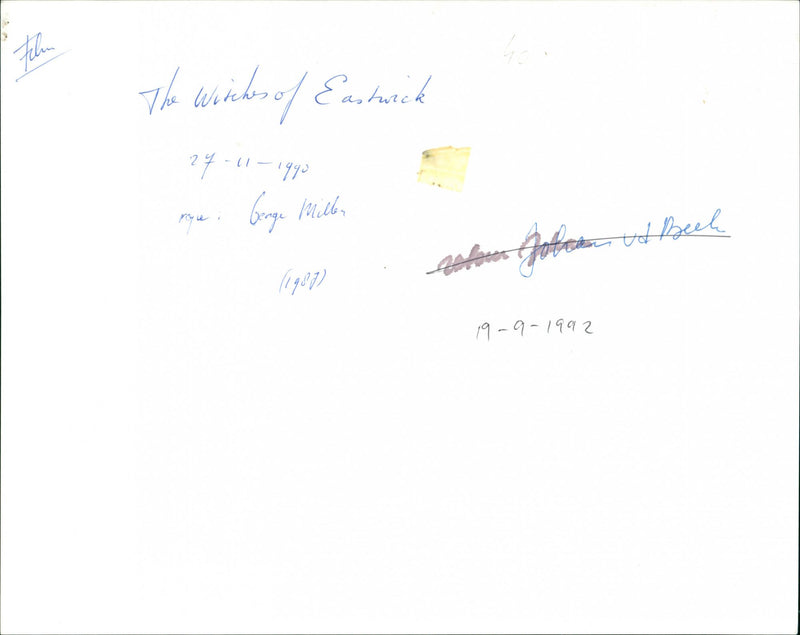 Film
The Witches of Eastwick
27-11-1990
regie: George Miller
Johan vd Beek
(1987)
19-9-1992